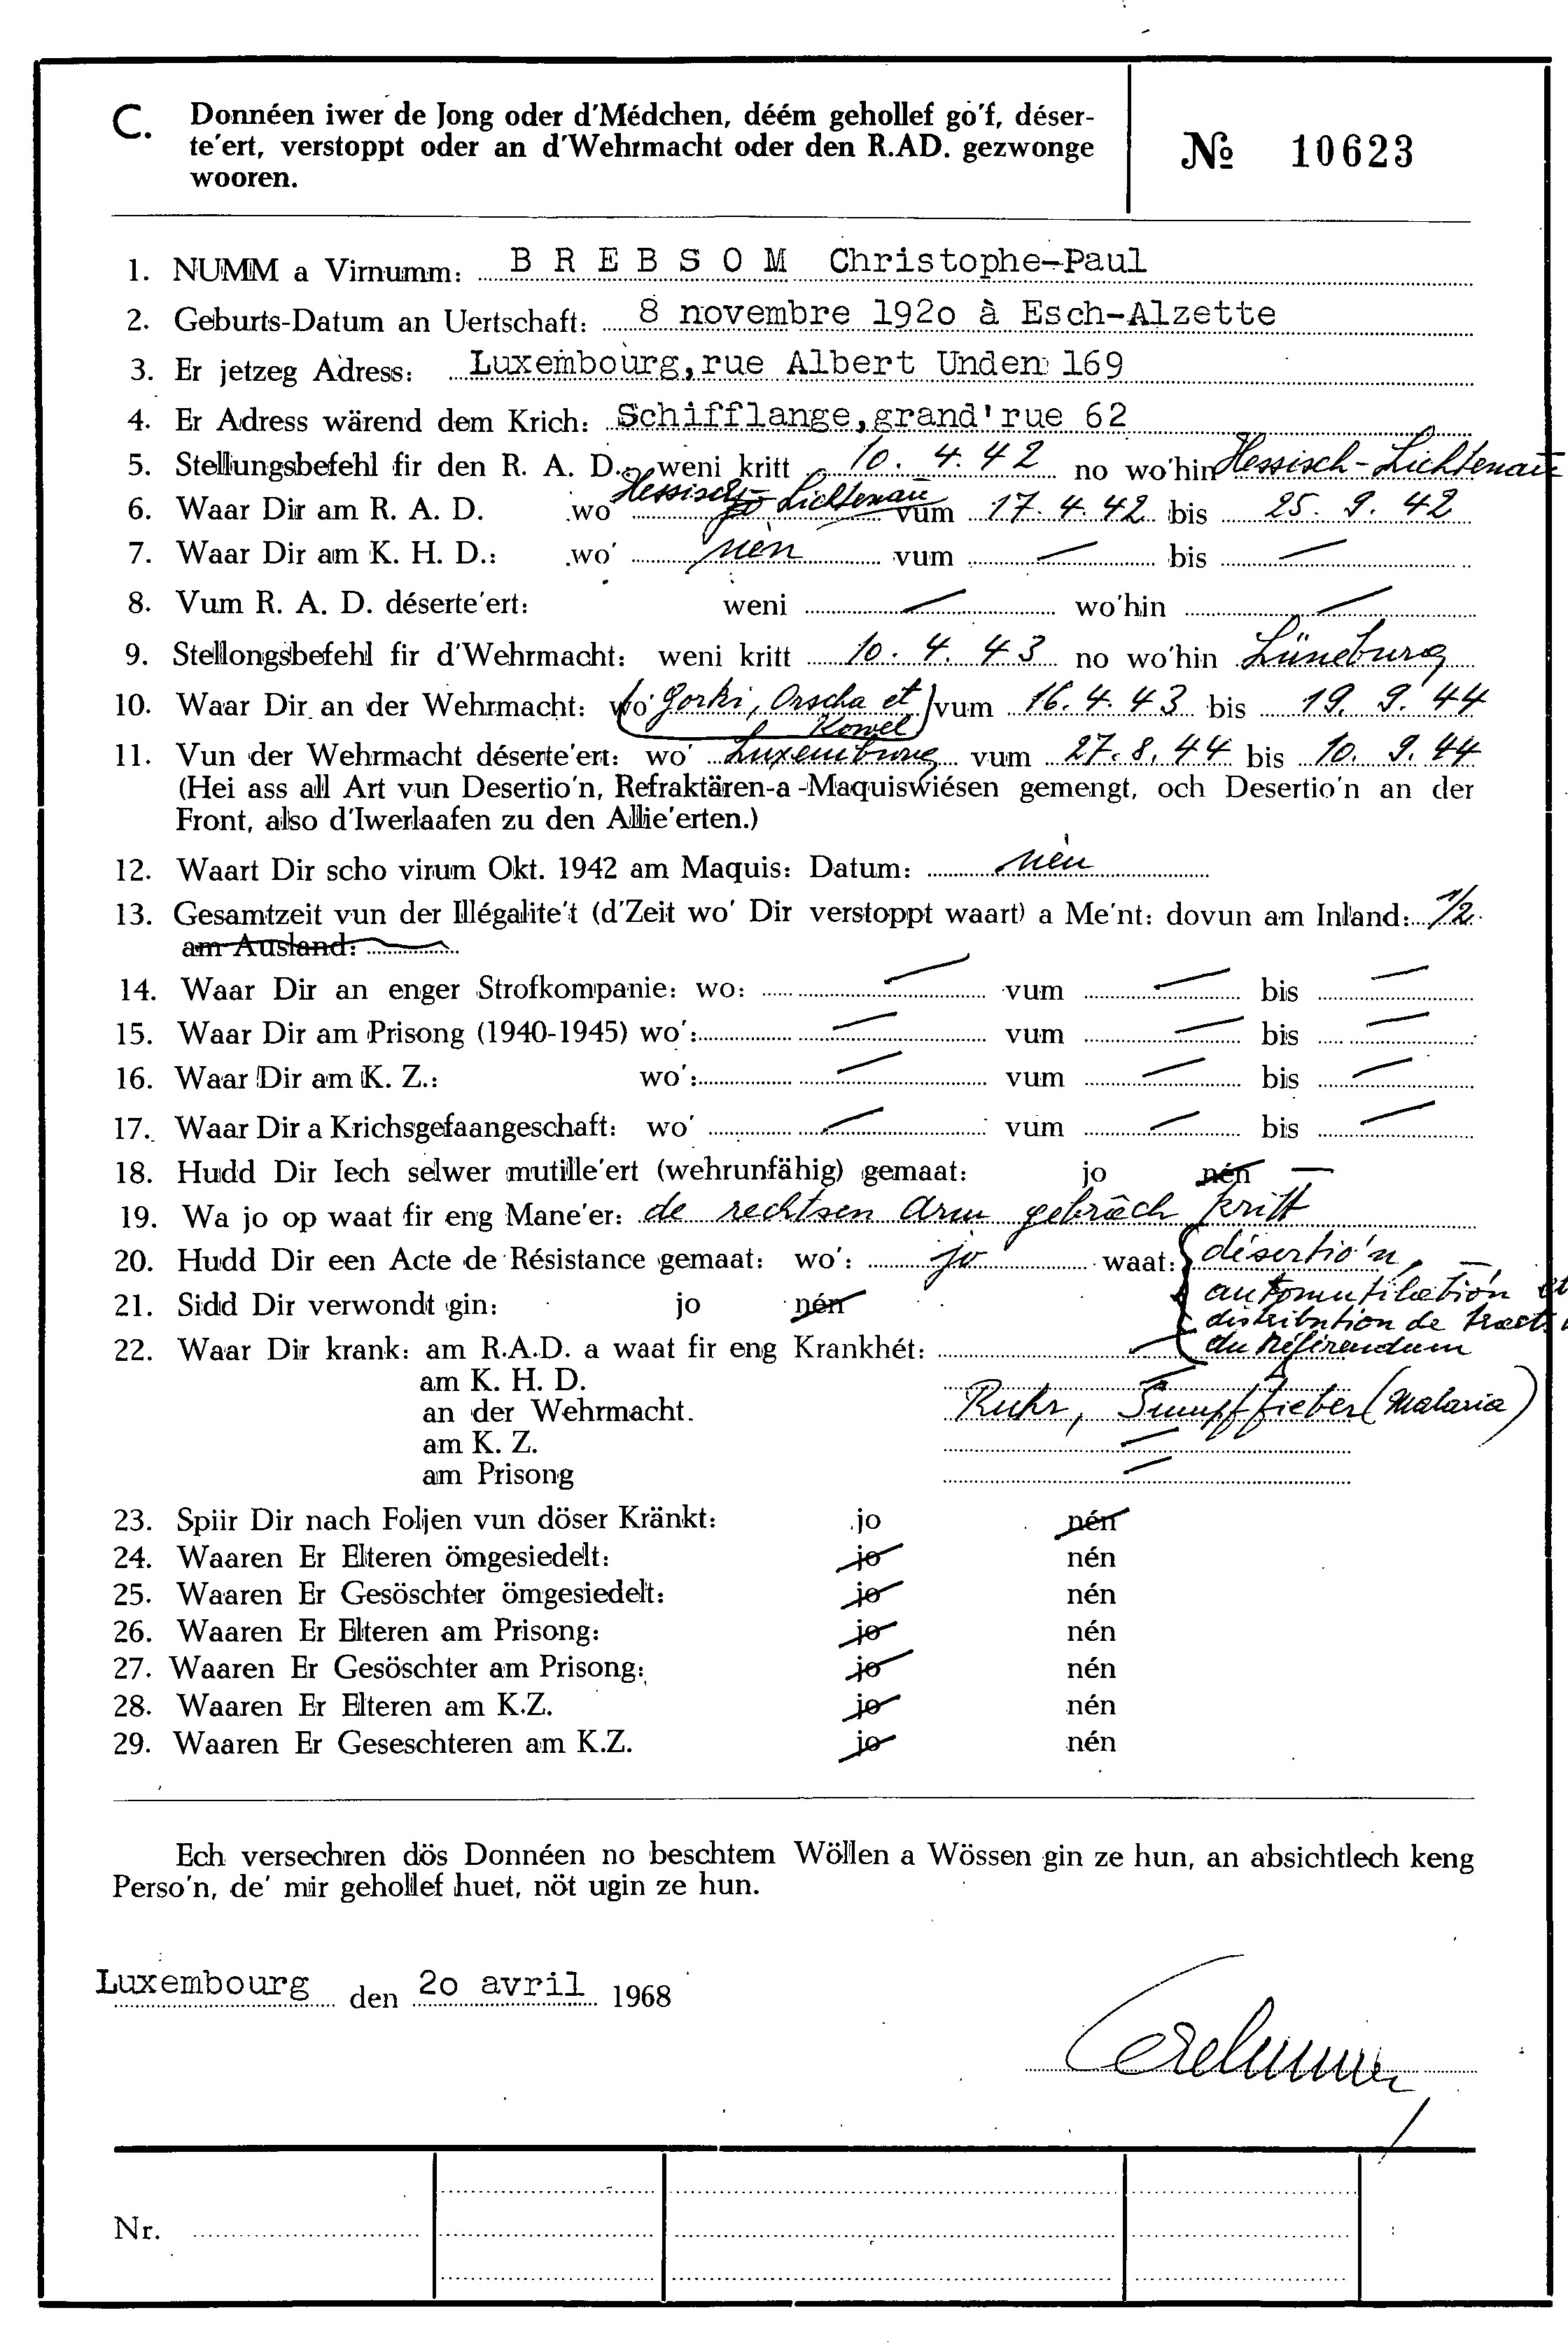 C. Donnéen iwer de Jong oder d'Médchen, déém gehollef go'f, déser-
te'ert, verstoppt oder an d'Wehrmacht oder den R.AD. gezwonge
wooren.
№ 10623
1. NUMM a Virnumm: B R E B S O M Christophe-Paul
2. Geburts-Datum an Uertschaft: 8 novembre 192o à Esch-Alzette
3. Er jetzeg Adress: Luxembourg,rue Albert Unden 169
4. Er Adress wärend dem Krich: Schifflange,grand'rue 62
5. Stellungsbefehl fir den R. A. D. weni kritt 10. 4. 42 no wo'hin Hessisch-Lichtenau
6. Waar Dir am R. A. D. wo' Hessisch-Lichtenau vum 17. 4. 42 bis 25. 9. 42
7. Waar Dir am K. H. D.: wo' nén vum — bis —
8. Vum R. A. D. déserte'ert: weni — wo'hin —
9. Stellongsbefehl fir d'Wehrmacht: weni kritt 10. 4. 43 no wo'hin Lüneburg
10. Waar Dir an der Wehrmacht: wo' (Gorki, Orscha et Kowel) vum 16. 4. 43 bis 19. 9. 44
11. Vun der Wehrmacht déserte'ert: wo' Luxembourg vum 27. 8. 44 bis 10. 9. 44
(Hei ass all Art vun Desertio'n, Refraktären-a-Maquiswiésen gemengt, och Desertio'n an der
Front, also d'Iwerlaafen zu den Allie'erten.)
12. Waart Dir scho virum Okt. 1942 am Maquis: Datum: nén
13. Gesamtzeit vun der Illégalite't (d'Zeit wo' Dir verstoppt waart) a Me'nt: dovun am Inland: 1/2
am Ausland:
14. Waar Dir an enger Strofkompanie: wo: — vum — bis —
15. Waar Dir am Prisong (1940-1945) wo': — vum — bis —
16. Waar Dir am K. Z.: wo': — vum — bis —
17. Waar Dir a Krichsgefaangeschaft: wo' — vum — bis —
18. Hudd Dir Iech selwer mutille'ert (wehrunfähig) gemaat: jo nén —
19. Wa jo op waat fir eng Mane'er: de rechtsen Arm gebrach kritt
20. Hudd Dir een Acte de Résistance gemaat: wo': jo waat: désertio'n,
21. Sidd Dir verwondt gin: jo nén automutilation et
distribution de tracts
22. Waar Dir krank: am R.A.D. a waat fir eng Krankhét: — du Référendum
am K. H. D. —
an der Wehrmacht. Ruhr, Sumpffieber (Malaria)
am K. Z. —
am Prisong —
23. Spiir Dir nach Foljen vun döser Kränkt: jo nén
24. Waaren Er Elteren ömgesiedelt: jo nén
25. Waaren Er Gesöschter ömgesiedelt: jo nén
26. Waaren Er Elteren am Prisong: jo nén
27. Waaren Er Gesöschter am Prisong: jo nén
28. Waaren Er Elteren am K.Z. jo nén
29. Waaren Er Geseschteren am K.Z. jo nén
Ech versechren dös Donnéen no beschtem Wöllen a Wössen gin ze hun, an absichtlech keng
Perso'n, de' mir gehollef huet, nöt ugin ze hun.
Luxembourg den 2o avril 1968
Nr.